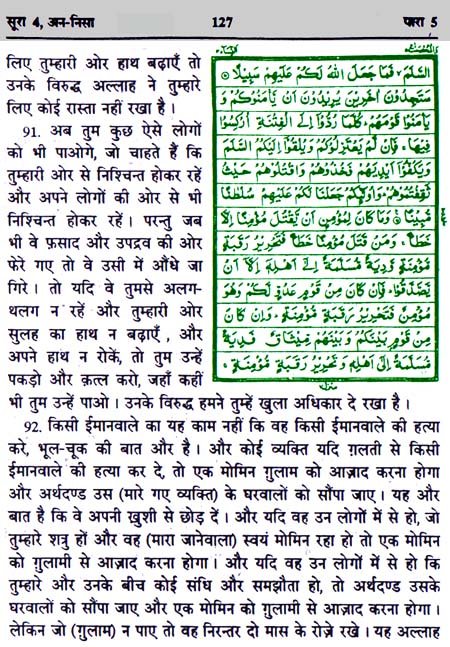 सूरा 4, अन-निसा 127 पारा 5
लिए तुम्हारी ओर हाथ बढ़ाएँ तो
उनके विरुद्ध अल्लाह ने तुम्हारे
लिए कोई रास्ता नहीं रखा है ।
91. अब तुम कुछ ऐसे लोगों
को भी पाओगे, जो चाहते हैं कि
तुम्हारी ओर से निश्चिन्त होकर रहें
और अपने लोगों की ओर से भी
निश्चिन्त होकर रहें । परन्तु जब
भी वे फ़साद और उपद्रव की ओर
फेरे गए तो वे उसी में औंधे जा
गिरे । तो यदि वे तुमसे अलग-
थलग न रहें और तुम्हारी ओर
सुलह का हाथ न बढ़ाएँ , और
अपने हाथ न रोकें, तो तुम उन्हें
पकड़ो और क़त्ल करो, जहाँ कहीं
السَّلَمَ فَمَا جَعَلَ اللهُ لَكُمْ عَلَيْهِمْ سَبِيلًا ۝
سَتَجِدُونَ اٰخَرِينَ يُرِيدُونَ اَنْ يَّاْمَنُوكُمْ وَ
يَاْمَنُوا قَوْمَهُمْ كُلَّمَا رُدُّوا اِلَى الْفِتْنَةِ اُرْكِسُوا
فِيهَا فَاِنْ لَّمْ يَعْتَزِلُوكُمْ وَيُلْقُوا اِلَيْكُمُ السَّلَمَ
وَيَكُفُّوا اَيْدِيَهُمْ فَخُذُوهُمْ وَاقْتُلُوهُمْ حَيْثُ
ثَقِفْتُمُوهُمْ وَاُولٰئِكُمْ جَعَلْنَا لَكُمْ عَلَيْهِمْ سُلْطٰنًا
مُّبِينًا ۝ وَمَا كَانَ لِمُؤْمِنٍ اَنْ يَّقْتُلَ مُؤْمِنًا اِلَّا
خَطَـًٔا وَمَنْ قَتَلَ مُؤْمِنًا خَطَـًٔا فَتَحْرِيرُ رَقَبَةٍ
مُّؤْمِنَةٍ وَّدِيَةٌ مُّسَلَّمَةٌ اِلٰى اَهْلِهِ اِلَّا اَنْ
يَّصَّدَّقُوا فَاِنْ كَانَ مِنْ قَوْمٍ عَدُوٍّ لَّكُمْ وَهُوَ
مُؤْمِنٌ فَتَحْرِيرُ رَقَبَةٍ مُّؤْمِنَةٍ وَاِنْ كَانَ
مِنْ قَوْمٍ بَيْنَكُمْ وَبَيْنَهُمْ مِّيثَاقٌ فَدِيَةٌ
مُّسَلَّمَةٌ اِلٰى اَهْلِهِ وَتَحْرِيرُ رَقَبَةٍ مُّؤْمِنَةٍ
भी तुम उन्हें पाओ । उनके विरुद्ध हमने तुम्हें खुला अधिकार दे रखा है ।
92. किसी ईमानवाले का यह काम नहीं कि वह किसी ईमानवाले की हत्या
करे, भूल-चूक की बात और है । और कोई व्यक्ति यदि ग़लती से किसी
ईमानवाले की हत्या कर दे, तो एक मोमिन ग़ुलाम को आज़ाद करना होगा
और अर्थदण्ड उस (मारे गए व्यक्ति) के घरवालों को सौंपा जाए । यह और
बात है कि वे अपनी खुशी से छोड़ दें । और यदि वह उन लोगों में से हो, जो
तुम्हारे शत्रु हों और वह (मारा जानेवाला) स्वयं मोमिन रहा हो तो एक मोमिन
को ग़ुलामी से आज़ाद करना होगा । और यदि वह उन लोगों में से हो कि
तुम्हारे और उनके बीच कोई संधि और समझौता हो, तो अर्थदण्ड उसके
घरवालों को सौंपा जाए और एक मोमिन को ग़ुलामी से आज़ाद करना होगा ।
लेकिन जो (ग़ुलाम) न पाए तो वह निरन्तर दो मास के रोज़े रखे । यह अल्लाह